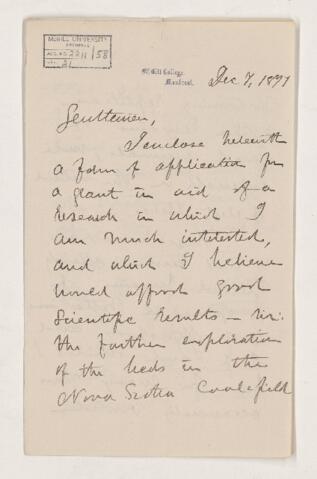 McGILL UNIVERSITY
ARCHIVES
ACC. NO. 2211/58
21
McGill College,
Montreal.
Dec 7, 1891
Gentlemen,
I enclose herewith
a form of application for
a grant in aid of a
research in which I
am much interested,
and which I believe
would afford good
scientific results — viz:
the further exploration
of the beds in the
Nova Scotia Coalfield